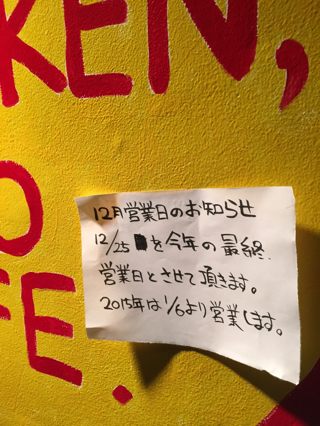 KEN,
O
FE.
12月営業日のお知らせ
12/25 を今年の最終
営業日とさせて頂きます。
2015年は1/6より営業します。